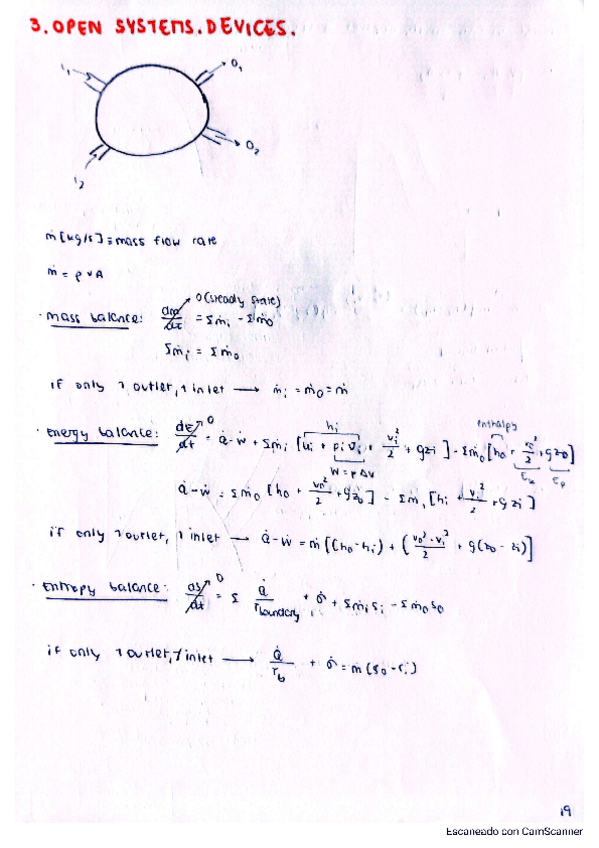 3. OPEN SYSTEMS. DEVICES.
i₁ O₁
O₂
i₂
ṁ [kg/s] ≡ mass flow rate
ṁ = ρ v A
· mass balance: dm/dt = Σṁᵢ - Σṁ₀
0 (steady state)
Σṁᵢ = Σṁ₀
if only 1 outlet, 1 inlet → ṁᵢ = ṁ₀ = ṁ
hᵢ enthalpy
· Energy balance: dE/dt ↗0 = Q̇ - Ẇ + Σṁᵢ [uᵢ + pᵢvᵢ + vᵢ²/2 + gzᵢ] - Σṁ₀ [h₀ + v₀²/2 + gz₀]
W = pΔv Eₖ Eₚ
Q̇ - Ẇ = Σṁ₀ [h₀ + v₀²/2 + gz₀] - Σṁᵢ [hᵢ + vᵢ²/2 + gzᵢ]
if only 1 outlet, 1 inlet → Q̇ - Ẇ = ṁ [(h₀ - hᵢ) + (v₀² - vᵢ²/2 + g(z₀ - zᵢ)]
· Entropy balance: dS/dt ↗0 = Σ Q̇/Tboundary + σ̇ + Σṁᵢsᵢ - Σṁ₀s₀
if only 1 outlet, 1 inlet → Q̇/T_b + σ̇ = ṁ (s₀ - sᵢ)
19
Escaneado con CamScanner